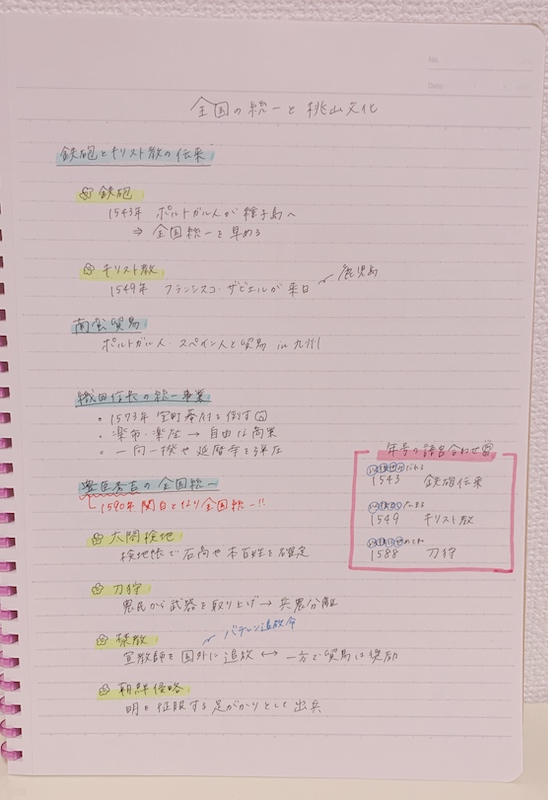 No.
Date
全国の統一と桃山文化
鉄砲とキリスト教の伝来
鉄砲
1543年 ポルトガル人が種子島へ
⇒ 全国統一を早める
キリスト教
鹿児島
1549年 フランシスコ・ザビエルが来日
南蛮貿易
ポルトガル人・スペイン人と貿易 in 九州
織田信長の統一事業
・1573年 室町幕府を倒す
・楽市・楽座 → 自由な商業
・一向一揆や延暦寺を弾圧
年号の語呂合わせ
1543 鉄砲伝来
1549 キリスト教
1588 刀狩
豊臣秀吉の全国統一
1590年 関白となり全国統一!!
太閤検地
検地帳で石高や本百姓を確定
刀狩
農民から武器を取り上げ → 兵農分離
禁教
バテレン追放令
宣教師を国外に追放 ↔ 一方で貿易は奨励
朝鮮侵略
明を征服する足がかりとして出兵